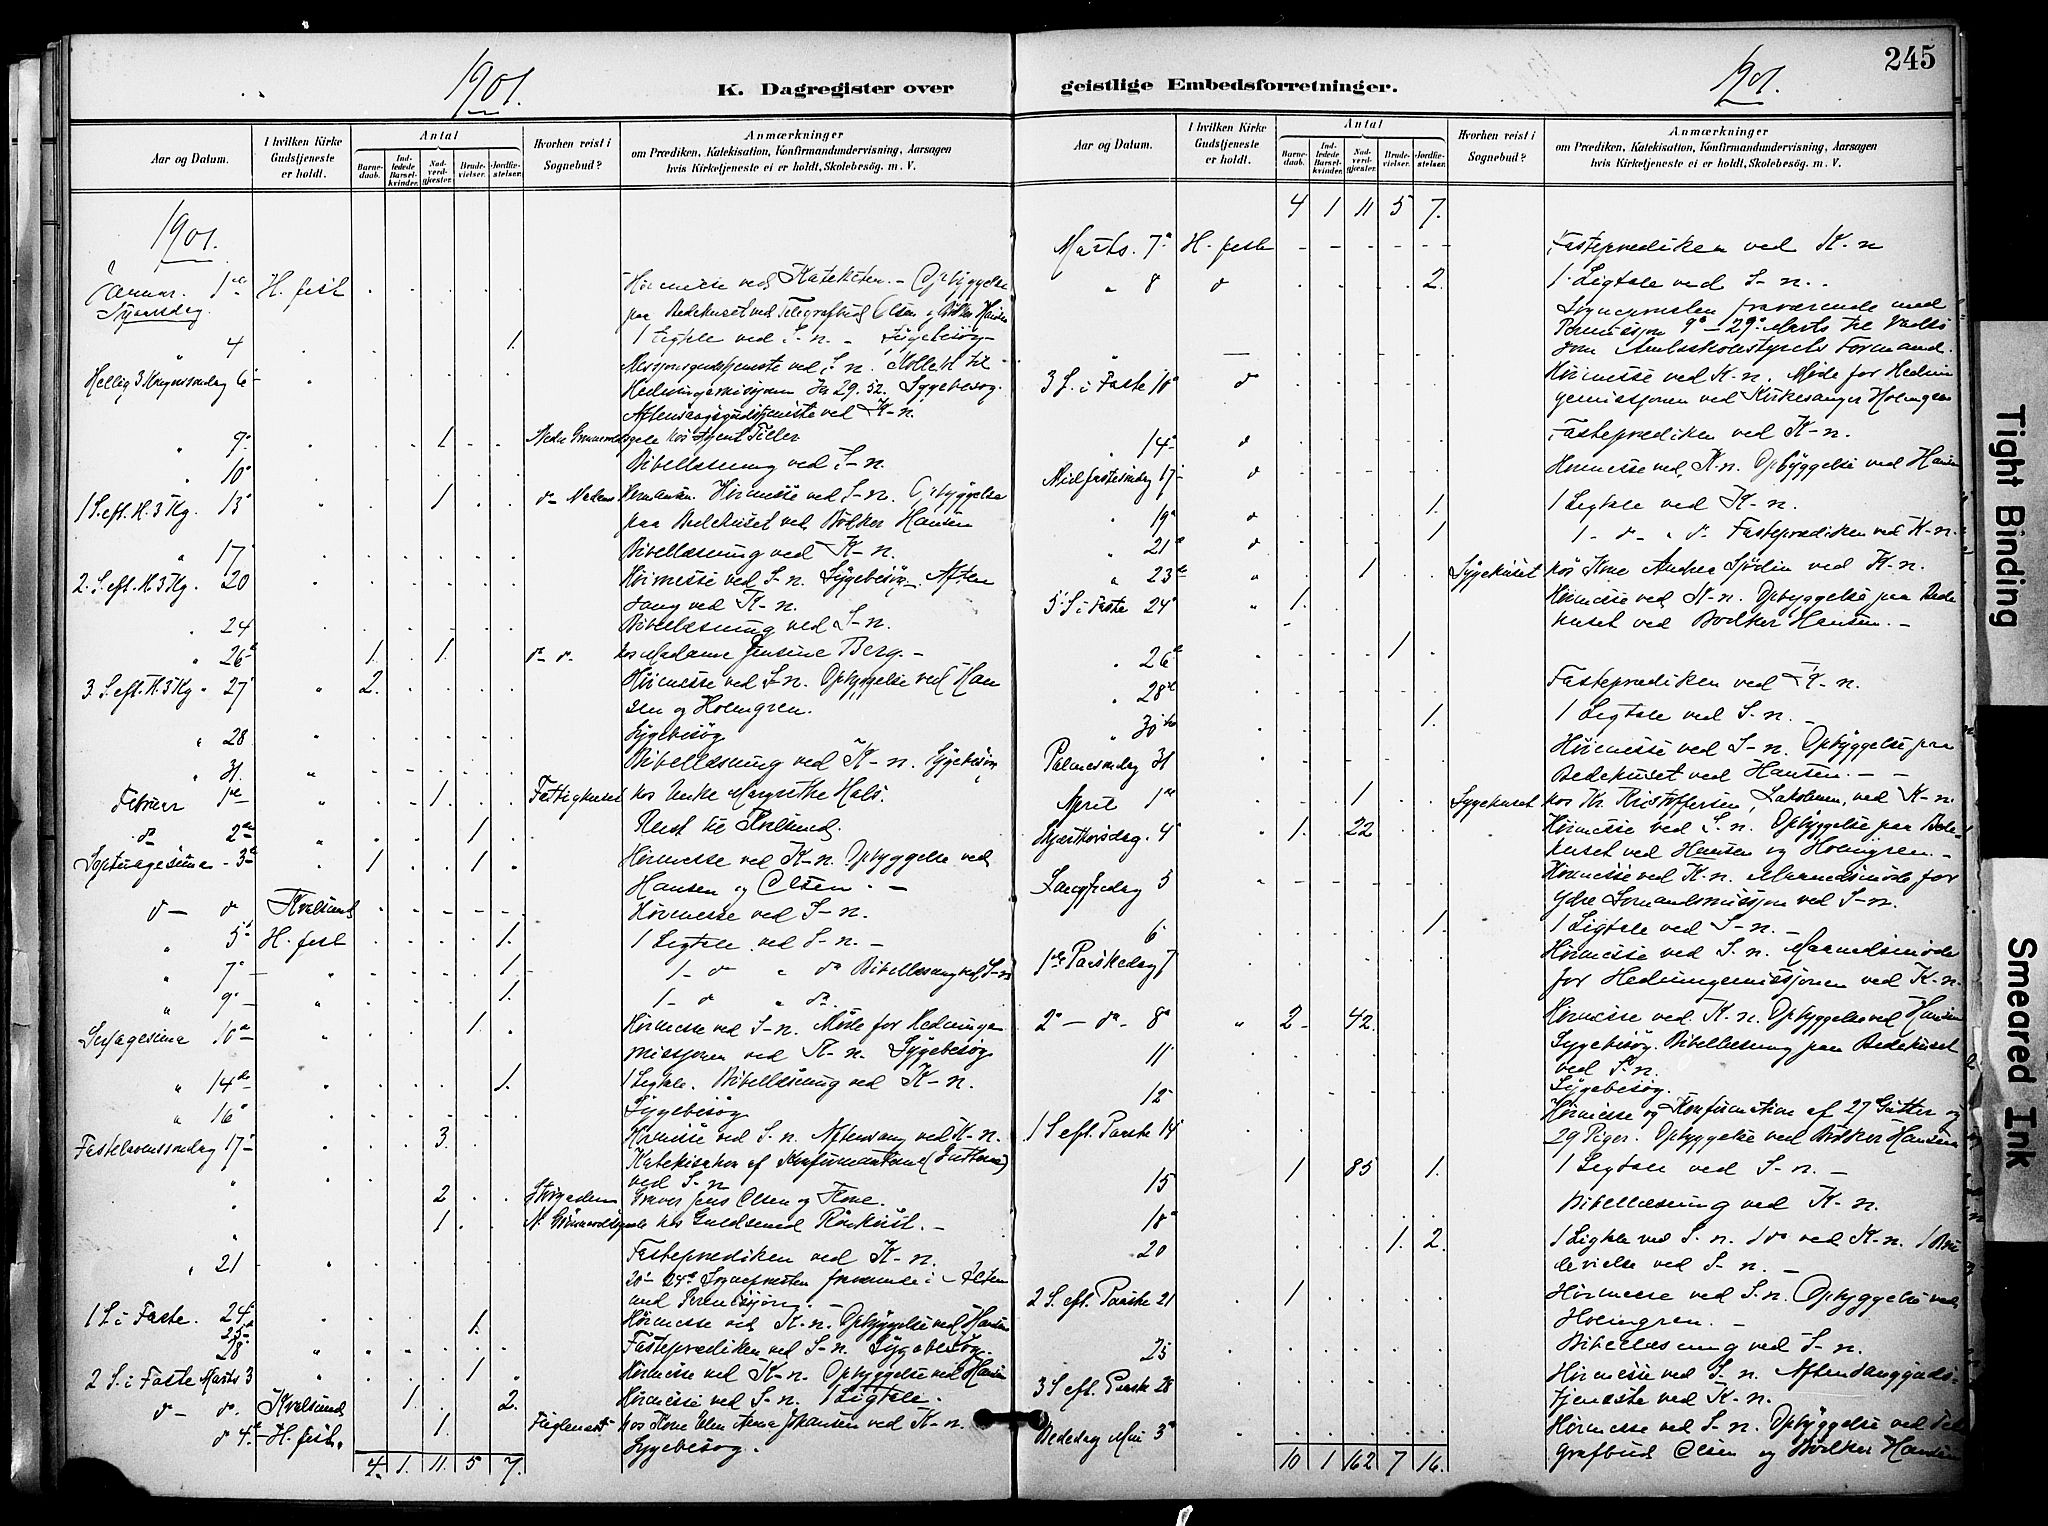 1901.
K. Dagregister over
Aar og Datum.
I hvilken Kirke Gudstjeneste er holdt.
Antal
Barnedaab.
Indledede Barselkvinder.
Nadverdgjæster.
Brudevielser.
Jordfæstelser.
Hvorhen reist i Sognebud?
Anmærkninger
om Prædiken, Katekisation, Konfirmandundervisning, Aarsagen
hvis Kirketjeneste ei er holdt, Skolebesög. m. V.
1901.
Januar. 1ste H. fest Höimesse ved Kateketen. - Opbyggelse
Nyaarsdag. paa Bedehuset ved Telegrafbud Olsen og Bödker Hansen
" 4 1. 1 Ligtale ved S-n. - Sygebesög -
Hellig 3 Kongersondag 6 Missjonsgudstjeneste ved S-n. Kollekt til
Hedningemissjonen Kr 29.52. Sygebesög.
Aftensangsgudstjeneste ved K-n.
" 9 1 Nedre Grönnevoldsgade hos Agent Tiller
" 10 Bibellæsning ved S-n.
1 S. eft. H. 3 Kg. 13 1 do Madame Hermansen. Höimesse ved S-n. Opbyggelse
paa Bedehuset ved Bödker Hansen
" 17 Bibellæsning ved K-n.
2. S. eft. H. 3 Kg. 20 Höimesse ved S-n. Sygebesög. Aften
sang ved K-n.
" 24 Bibellæsning ved S-n.
" 26 1. 1. do do. hos Madame Jensine Berg. -
3. S. eft. H. 3 Kg. 27 " 2. Höimesse ved S-n. Opbyggelse ved Han
sen og Holmgren.
" 28 " Sygebesög
" 31. " Bibellæsning ved K-n. Sygebesög
Februar 1ste " 1. Fattighuset hos Enke Margrethe Hals.
do 2den " 1. Reist til Kvalsund.
Septuagesima - 3die " 1 1. Höimesse ved K-n. Opbyggelse ved
Hansen og Olsen. -
do - do Kvalsund Höimesse ved S-n.
" 5 H. fest 1. 1 Ligtale ved S-n. -
" 7 " 1 1 - do " do Bibellæsning ved S-n
" 9 " 1. 1 - do " do.
Sexagesima 10 " 1. Höimesse ved S-n. Möde for Hedninge
missjonen ved K-n. Sygebesög
" 14de " 1. 1 Ligtale. Bibellæsning ved K-n.
" 16 Sygebesög
Fastelavenssondag 17 " 3. Höimesse ved S-n. Aftensang ved K-n.
Katekisation af Konfirmanterne (Gutterne)
ved S-n
" 2 Graver Jens Olsen og Kone.
" 1 N. Grönnevoldsgade hos Guldsmed
" 21 " Fasteprædiken ved K-n.
20 - 24 Sognepresten fraværende i Alten
med Permissjon. -
1 S. i Faste. 24 " 1. Höimesse ved K-n. Opbyggelse ved Hansen
25
28 " Fasteprædiken ved S-n. Sygebesög.
2 S. i Faste Marts 3 " 1 Höimesse ved K-n. Opbyggelse ved Hansen
do - do. Kvalsund 1. 2. Höimesse ved S-n. 1 Ligtale.
do 4 H. fest. 1. Fuglenæs hos Kone Elen Anna Johansen ved K-n.
Sygebesög.
4. 1. 11. 5 7.
245
1901.
geistlige Embedsforretninger.
Aar og Datum.
I hvilken Kirke Gudstjeneste er holdt.
Antal
Barnedaab.
Indledede Barselkvinder.
Nadverdgjæster.
Brudevielser.
Jordfæstelser.
Hvorhen reist i Sognebud?
Anmærkninger
om Prædiken, Katekisation, Konfirmandundervisning, Aarsagen
hvis Kirketjeneste ei er holdt, Skolebesög. m. V.
4 1 11 5 7.
Marts. 7 H. fest Fasteprædiken ved K-n
" 8 do 2. 1 Ligtale ved S-n.
Sognepresten fraværende med
Permissjon 9 - 29 Marts til Vadsö
som Amtsskolestyrets Formand.
3 S. i Faste 10 do Höimesse ved K-n. Möde for Hednin
gemissjonen ved Kirkesanger Holmgren
" 14 do Fasteprædiken ved K-n.
Midfastesöndag 17 do Höimesse ved K-n. Opbyggelse ved Hansen
" 19 do 1. 1 Ligtale ved K-n.
" 21 do 1 1 - do - " do. Fasteprædiken ved K-n.
" 23 " 1 Sygehuset hos Kone Andrea Sjödin ved K-n.
5 S. i Faste 24 " 1. Höimesse ved K-n. Opbyggelse paa Bede
huset ved Bödker Hansen. -
" 26 1
" 28 Fasteprædiken ved K-n.
" 30 1. 1 Ligtale ved S-n. -
Palmesondag 31 Höimesse ved S-n. Opbyggelse paa
Bedehuset ved Hansen. - -
April 1 1 Sygehuset hos Kr. Kristoffersen, ved K-n
Skjærthorsdag. 4 " 1. 22 Höimesse ved S-n. Opbyggelse paa Bede
huset ved Hansen og Holmgren. -
Langfredag 5 " Höimesse ved K-n. Maanedsmöde for
Ydre Sömandsmissjon ved S-n.
6 1. 1 Ligtale ved S-n. -
1ste Paaskedag 7 Höimesse ved S-n. Maanedsmöde
for Hedningemissjonen ved K-n.
2 - do - 8 " 2 42. Höimesse ved K-n. Opbyggelse ved Hansen
11 Sygebesög. Bibellæsning paa Bedehuset
ved S-n.
12 Sygebesög.
1 S. eft. Paaske 14 Höimesse og Konfirmation af 27 Gutter og
29 Piger. Opbyggelse ved Bödker Hansen
15 1 85 1. 1 Ligtale ved S-n. -
18 Bibellæsning ved K-n.
20 1. 2. 1 Ligtale ved S-n. 1 do ved K-n. 1 Bru
devielse ved S-n. -
2 S. eft. Paaske 21 1 Höimesse ved S-n. Opbyggelse ved
Holmgren. -
25 Bibellæsning ved S-n.
3 S. eft. Paaske 28 Höimesse ved S-n. Aftensangguds-
tjeneste ved K-n.
Bededag Mai 3 Höimesse ved S-n. Opbyggelse ved Tele
grafbud Olsen og Bödker Hansen
10 1 162 7 16.
Tight Binding
Smeared Ink